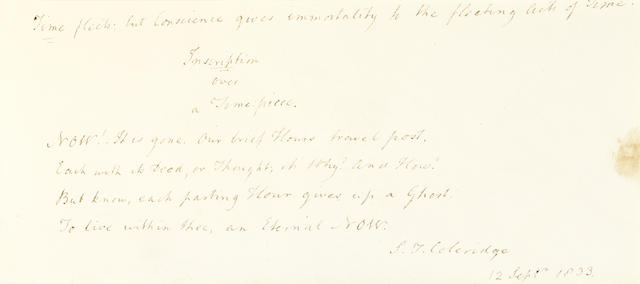 Time fleets; but Conscience gives immortality to the fleeting Acts of Time.
Inscription
over
a Time-piece.
NOW! It is gone. Our brief Hours travel post,
Each with its Deed, or Thought, its Why? And How?
But know, each parting Hour gives up a Ghost.
To live within thee, an Eternal NOW.
S. T. Coleridge
12 Septr 1833.